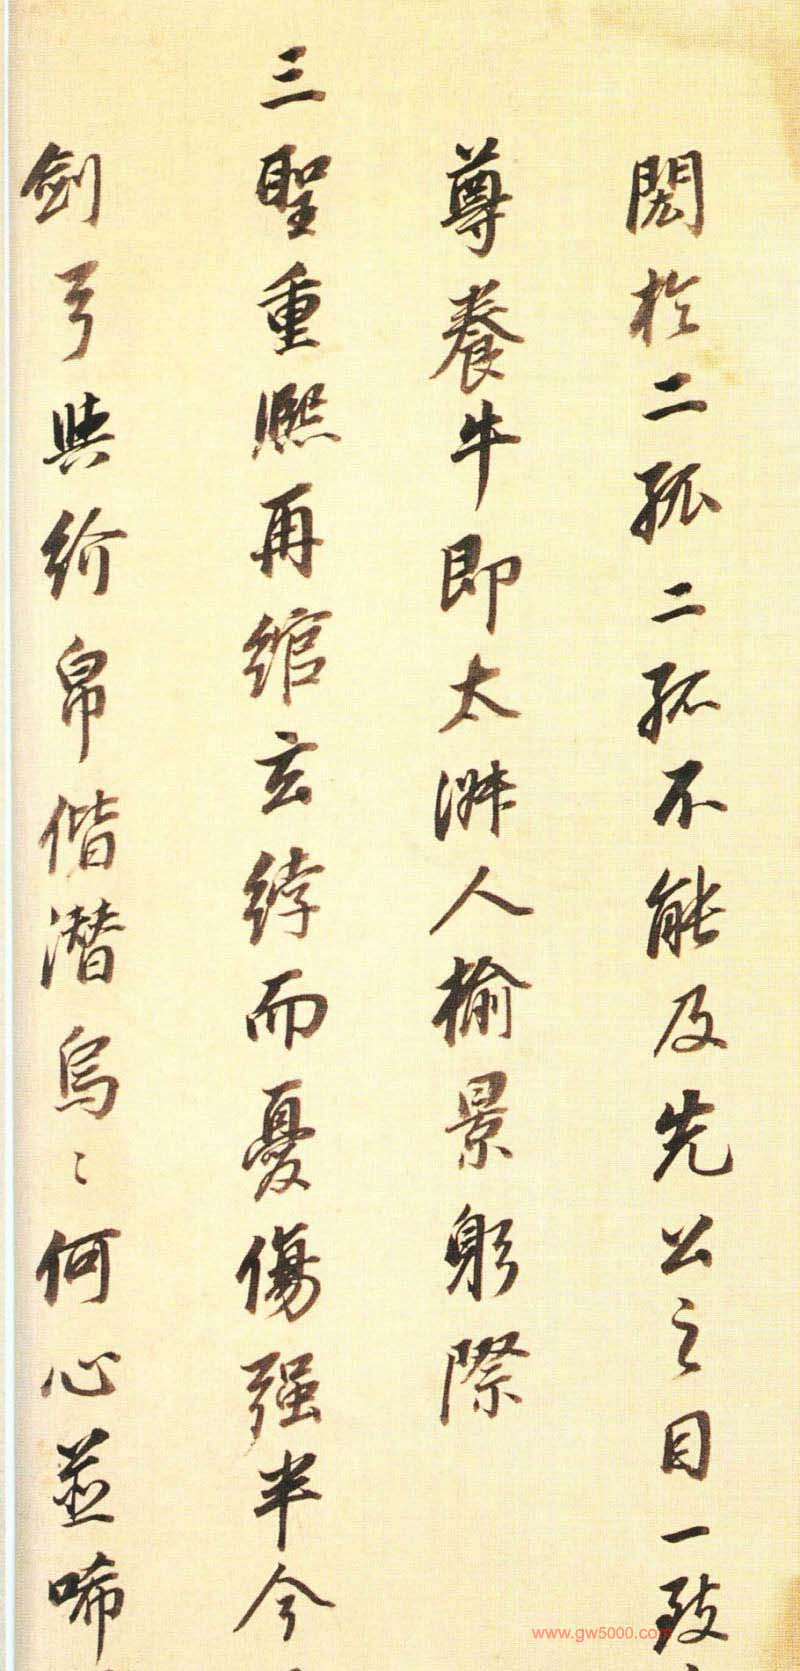 閎於二孤二孤不能及先公之目一致
尊養牛即太淵人榆景躬際
三聖重熙再綰玄綍而憂傷强半今
劍弓與紟帛偕潛烏〻何心並唏
www.gw5000.com